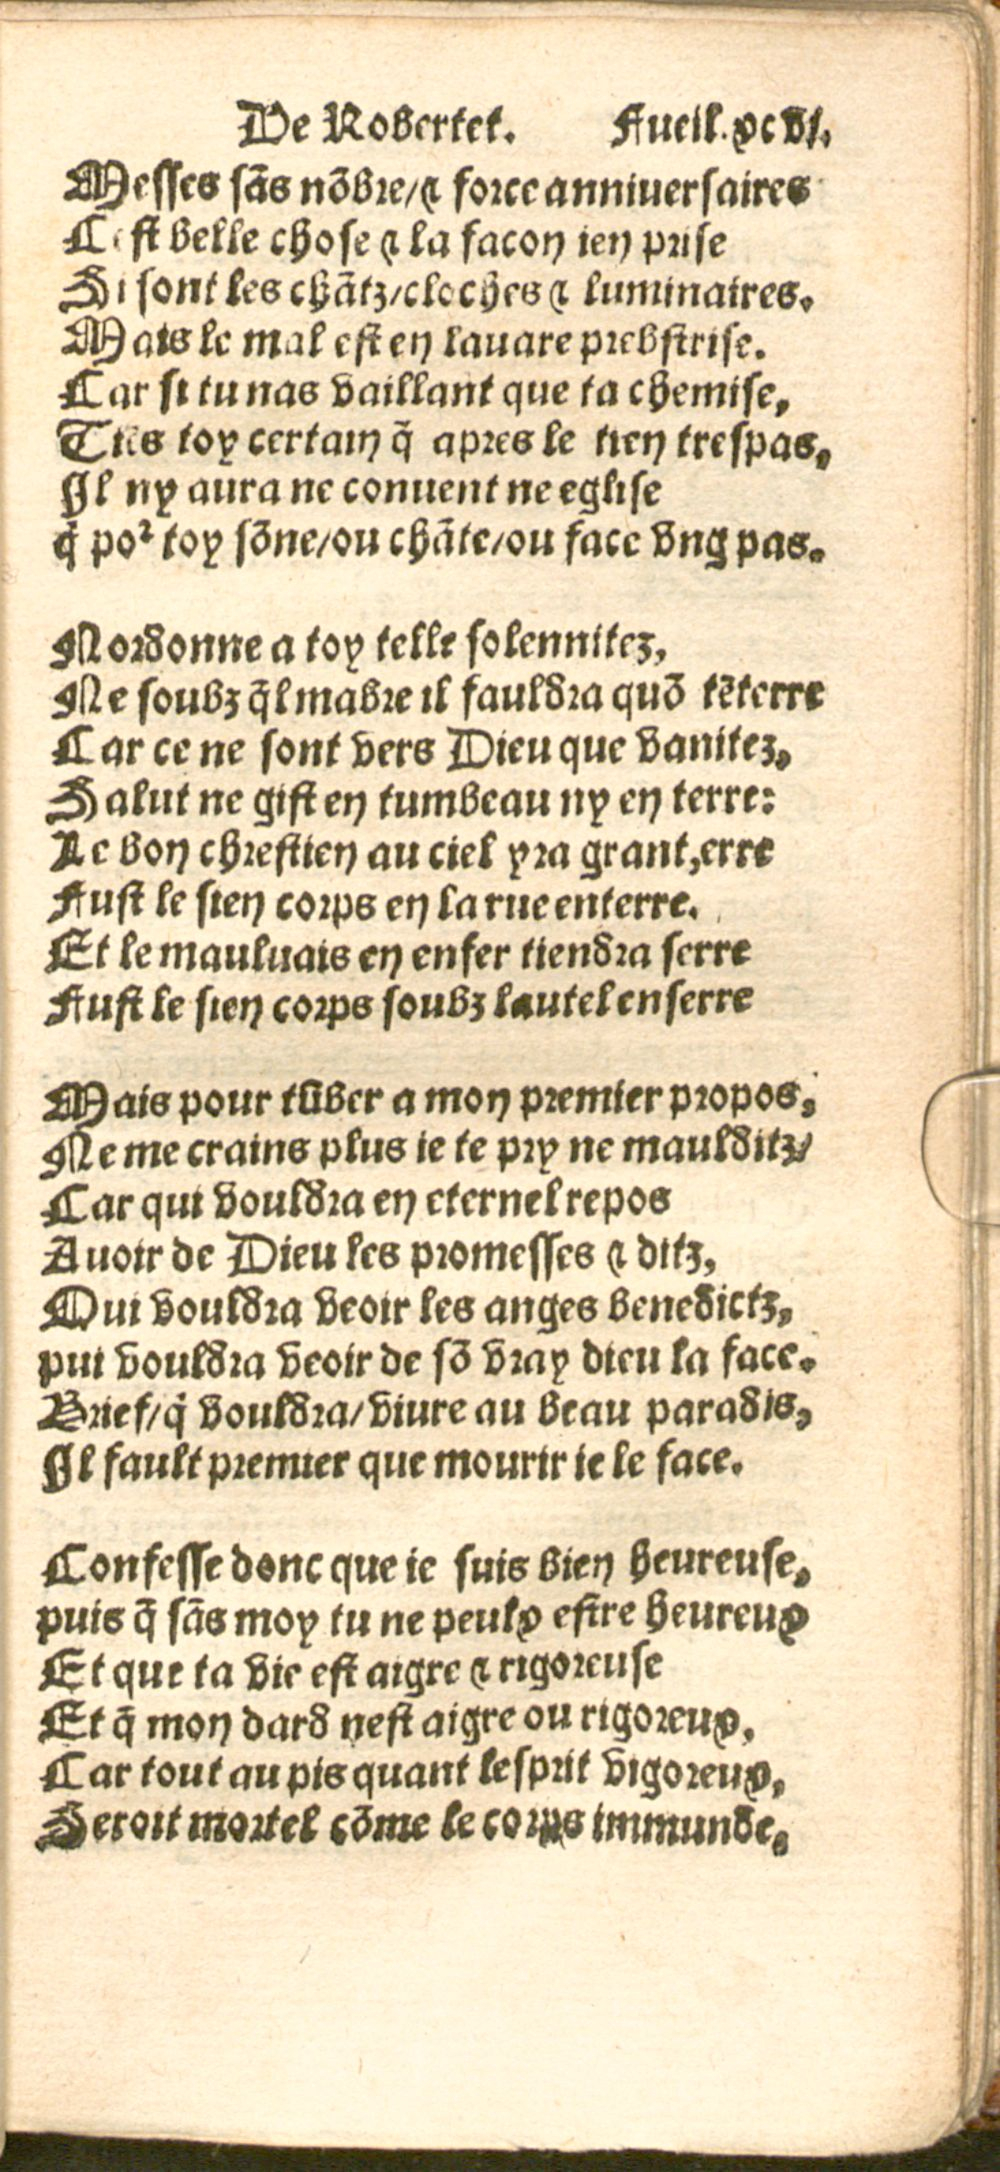 De Robertet. Fueil. xcvi.
Messes sãs nõbre/⁊ force anniuersaires
Cest belle chose ⁊ la facon ien prise
Si sont les chãtz/cloches ⁊ luminaires.
Mais le mal est en lauare prebstrise.
Car si tu nas vaillant que ta chemise,
Tiēs toy certain q̃ apres le tien trespas,
Il ny aura ne conuent ne eglise
q̇ poꝰ toy sõne/ou chãte/ou face vng pas.

Nordonne a toy telle solennitez,
Ne soubz q̃l mabre il fauldra quõ tẽterre
Car ce ne sont vers Dieu que vanitez,
Salut ne gist en tumbeau ny en terre:
Le bon chrestien au ciel yra grant,erre
Fust le sien corps en la rue enterre.
Et le mauluais en enfer tiendra serre
Fust le sien corps soubz lautel enserre

Mais pour tũber a mon premier propos,
Ne me crains plus ie te pry ne maulditz/
Car qui vouldra en eternel repos
Auoir de Dieu les promesses ⁊ ditz,
Qui vouldra veoir les anges benedictz,
pui vouldra veoir de sõ vray dieu la face.
Brief/q̇ vouldra/viure au beau paradis,
Il fault premier que mourir ie le face.

Confesse donc que ie suis bien heureuse,
puis q̃ sãs moy tu ne peulx estre heureux
Et que ta vie est aigre ⁊ rigoreuse
Et q̃ mon dard nest aigre ou rigoreux,
Car tout au pis quant lesprit vigoreux,
Seroit mortel cõme le corps immunde,